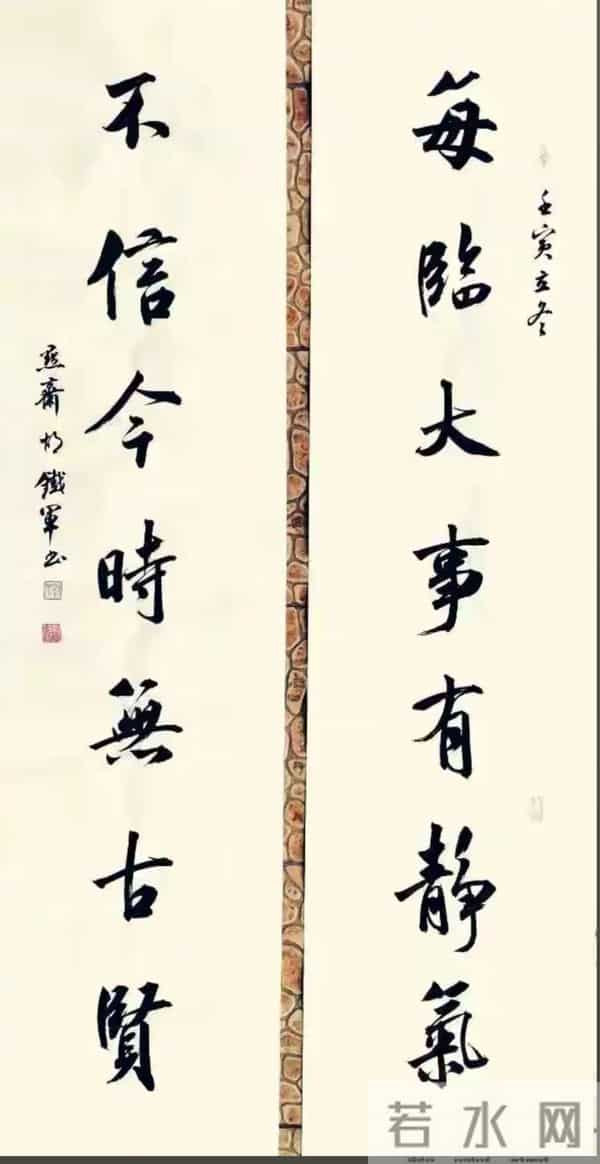 壬寅立冬
每臨大事有静氣
不信今時無古賢
齋 鐵軍书
若水网